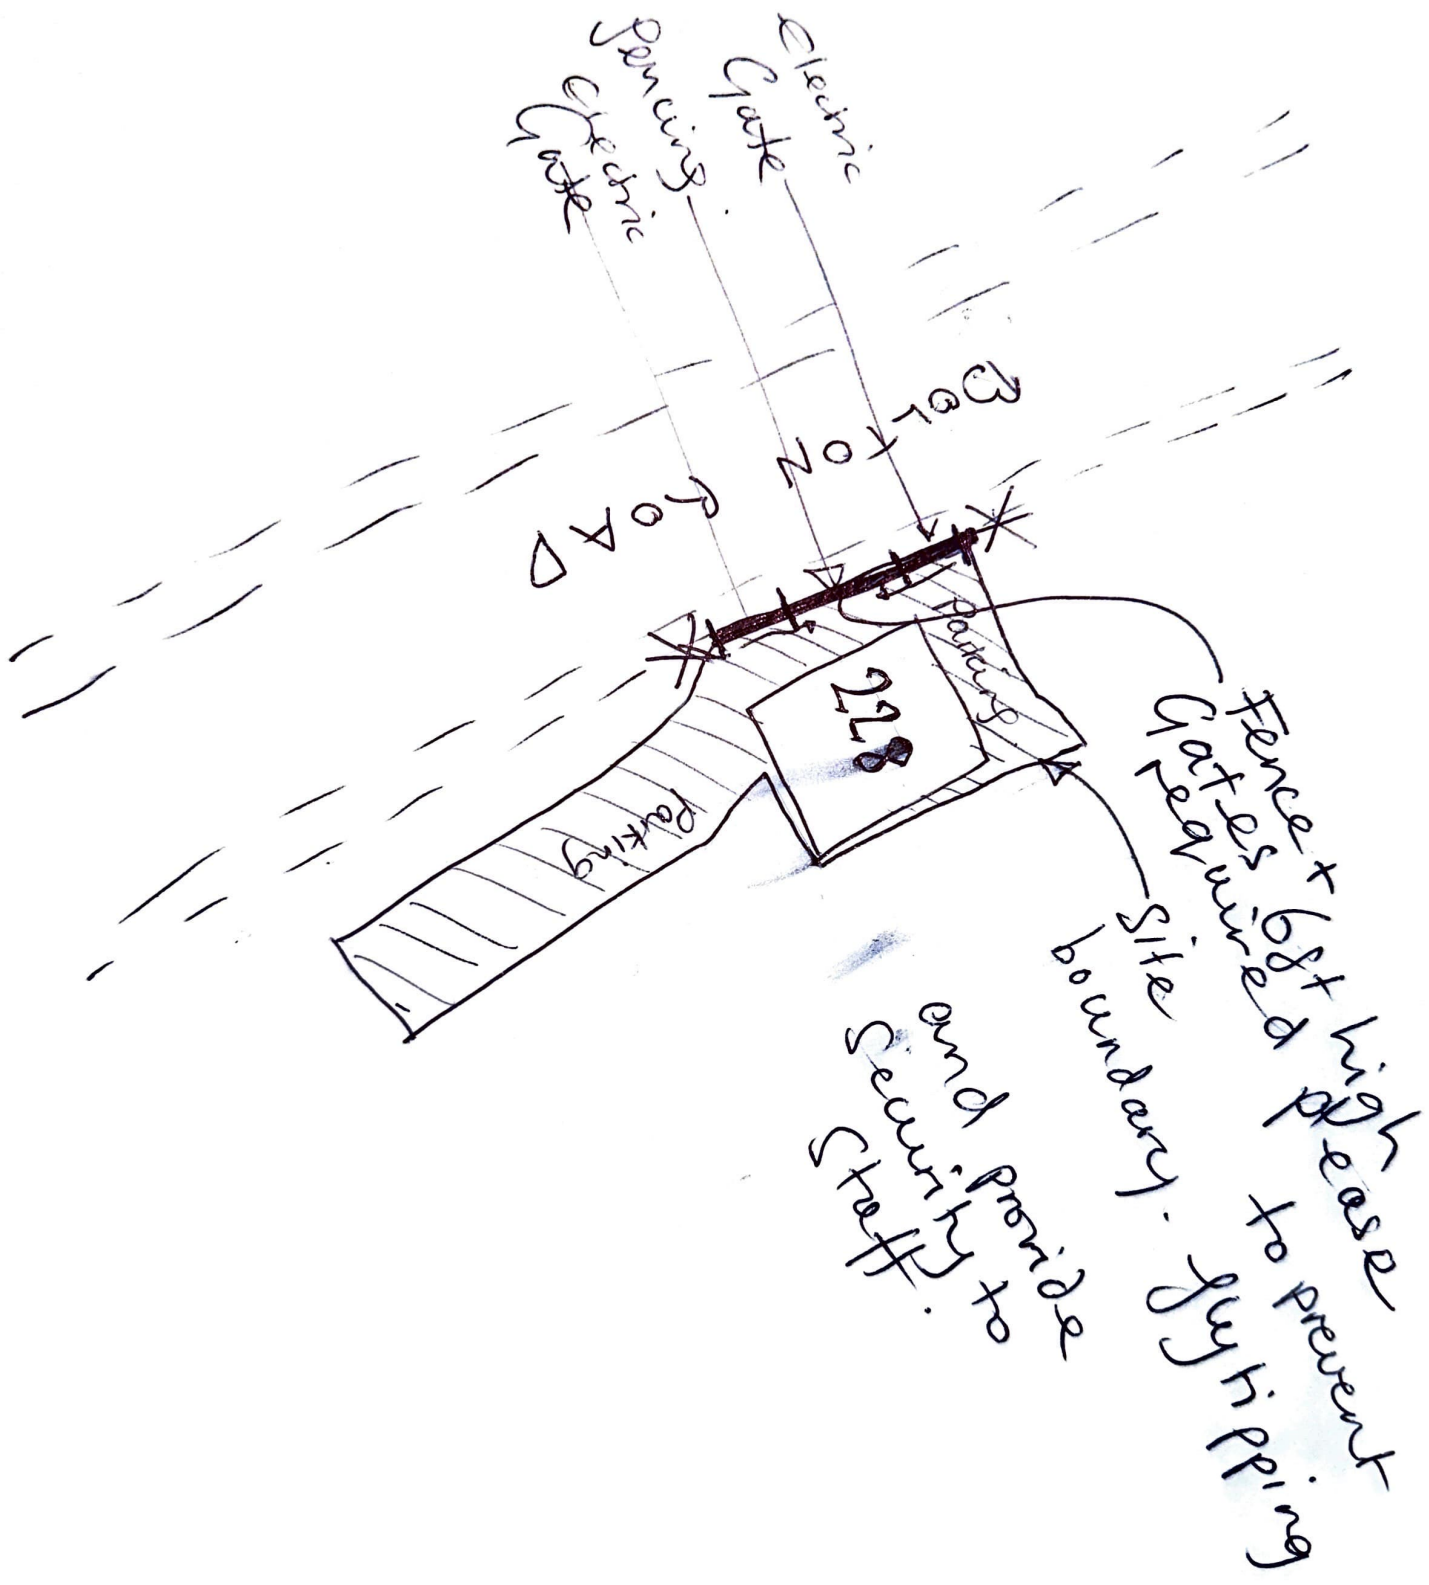 Electric
Gate
fencing
Electric
Gate
Barton
roAD
Parking
228
Parking
Fence + 6ft high
Gates required please
to prevent
flytipping
and provide
security to
staff.
Site
boundary.